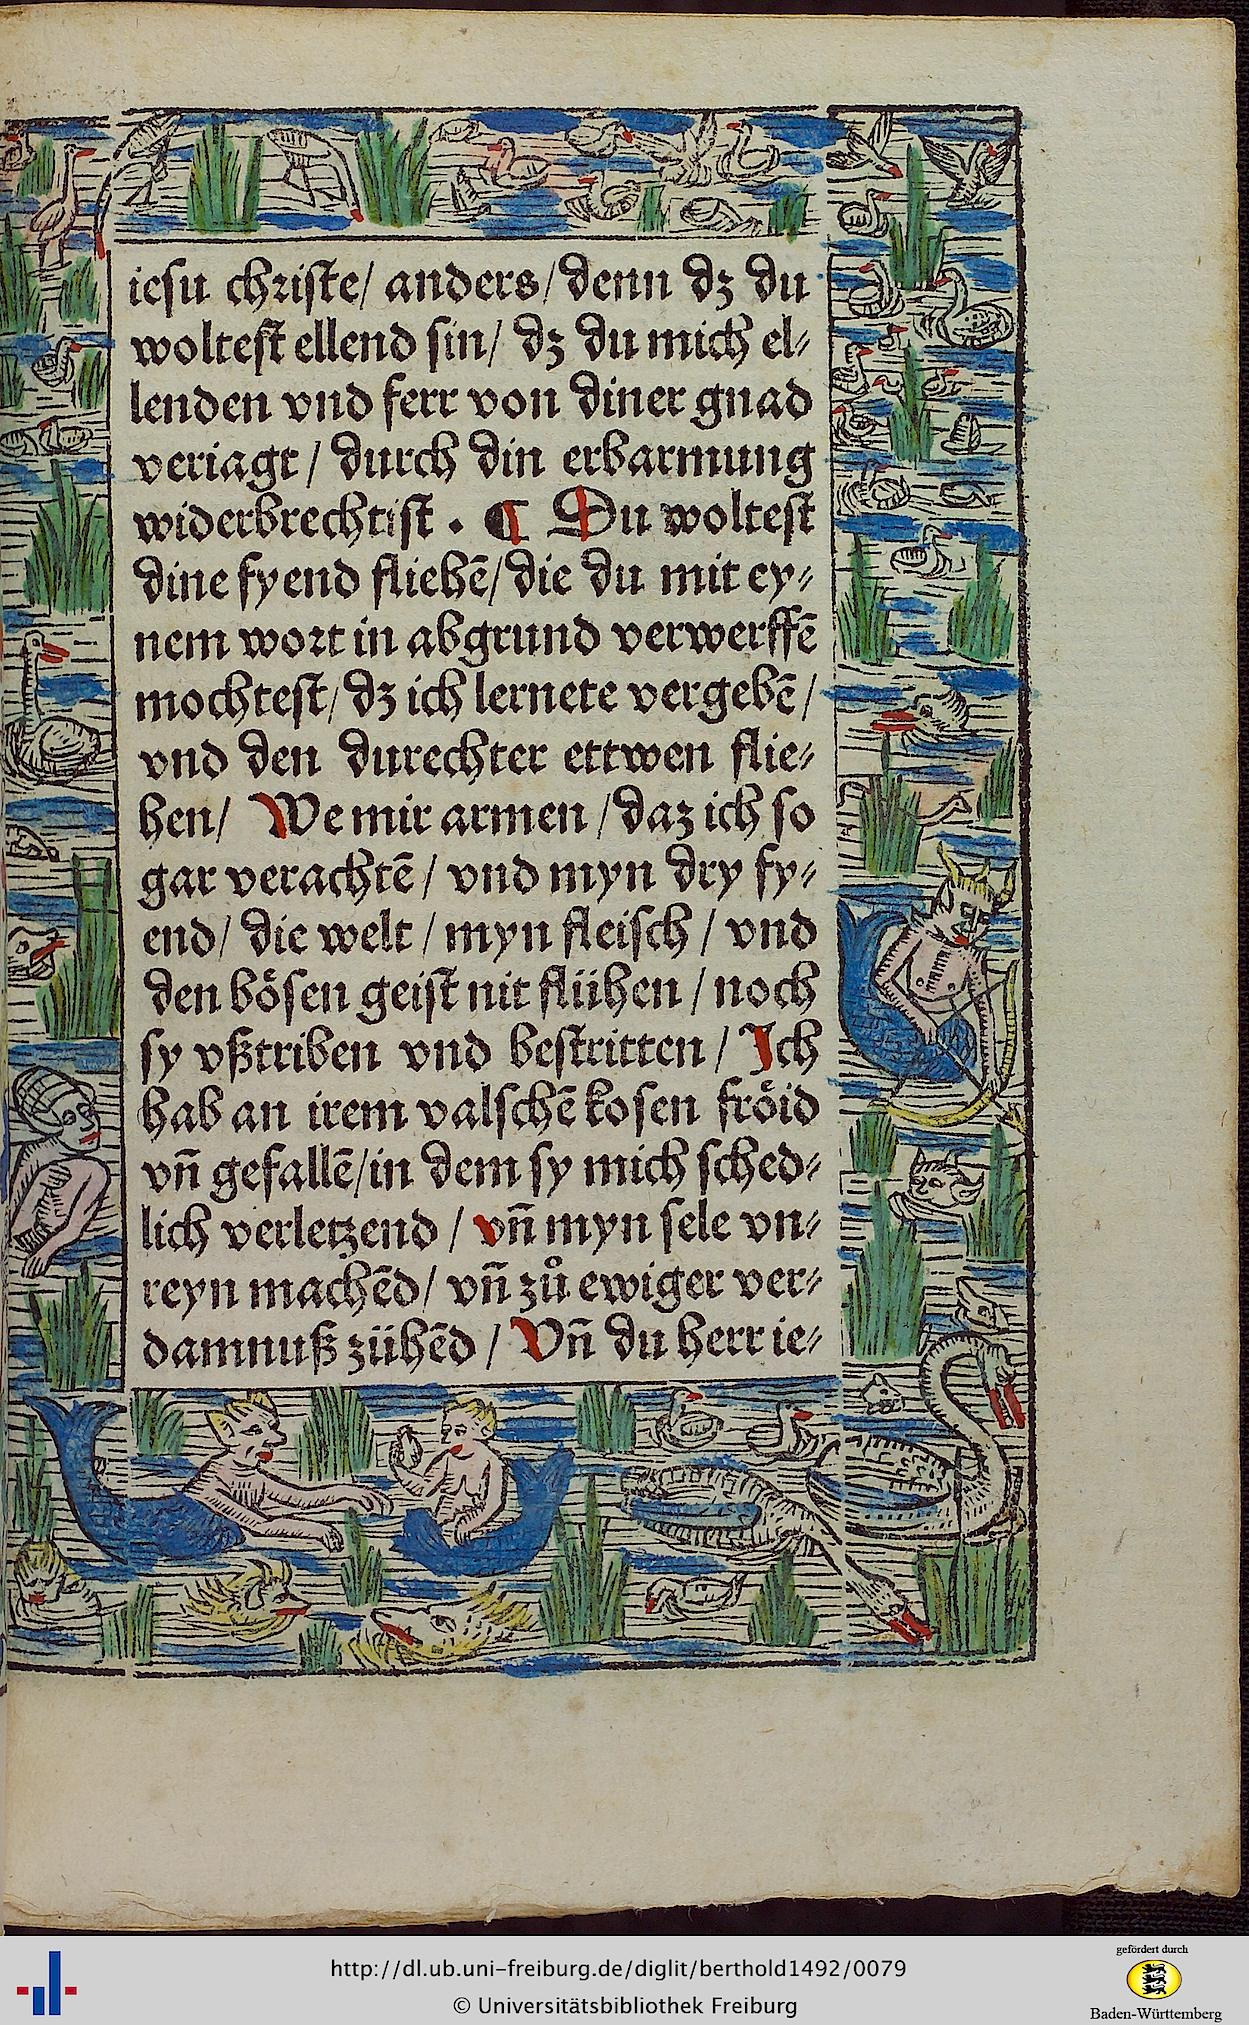 iesu christe/ anders/ denn dz du
woltest ellend sin/ dz du mich el⸗
lenden vnd ferr von diner gnad
veriagt/ durch din erbarmung
widerbrechtist. ¶ Du woltest
dine fyend fliehẽ/ die du mit ey⸗
nem wort in abgrund verwerffẽ
mochtest/ dz ich lernete vergebẽ/
vnd den durechter ettwen flie⸗
hen/ We mir armen/ daz ich so
gar verachtẽ/ vnd myn dry fy⸗
end/ die welt/ myn fleisch/ vnd
den bo̊sen geist nit flühen/ noch
sy vßtriben vnd bestritten/ Ich
hab an irem valschẽ kosen fröid
vñ gefallẽ/ in dem sy mich sched⸗
lich verletzend/ vñ myn sele vn⸗
reyn machẽd/ vñ zů ewiger ver⸗
damnuß zühẽd/ Vñ du herr ie⸗
http://dl.ub.uni-freiburg.de/diglit/berthold1492/0079
© Universitätsbibliothek Freiburg
gefördert durch
Baden-Württemberg